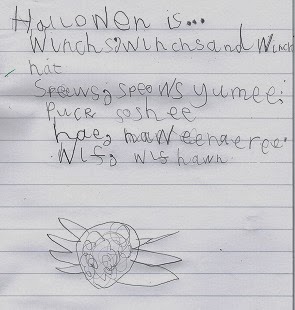 Hallowen is...
Winchs, winchsand winch
hat
Speews, speows yumee;
Puck soshee
hae, haw eenaeree.
Wif, wif hawn